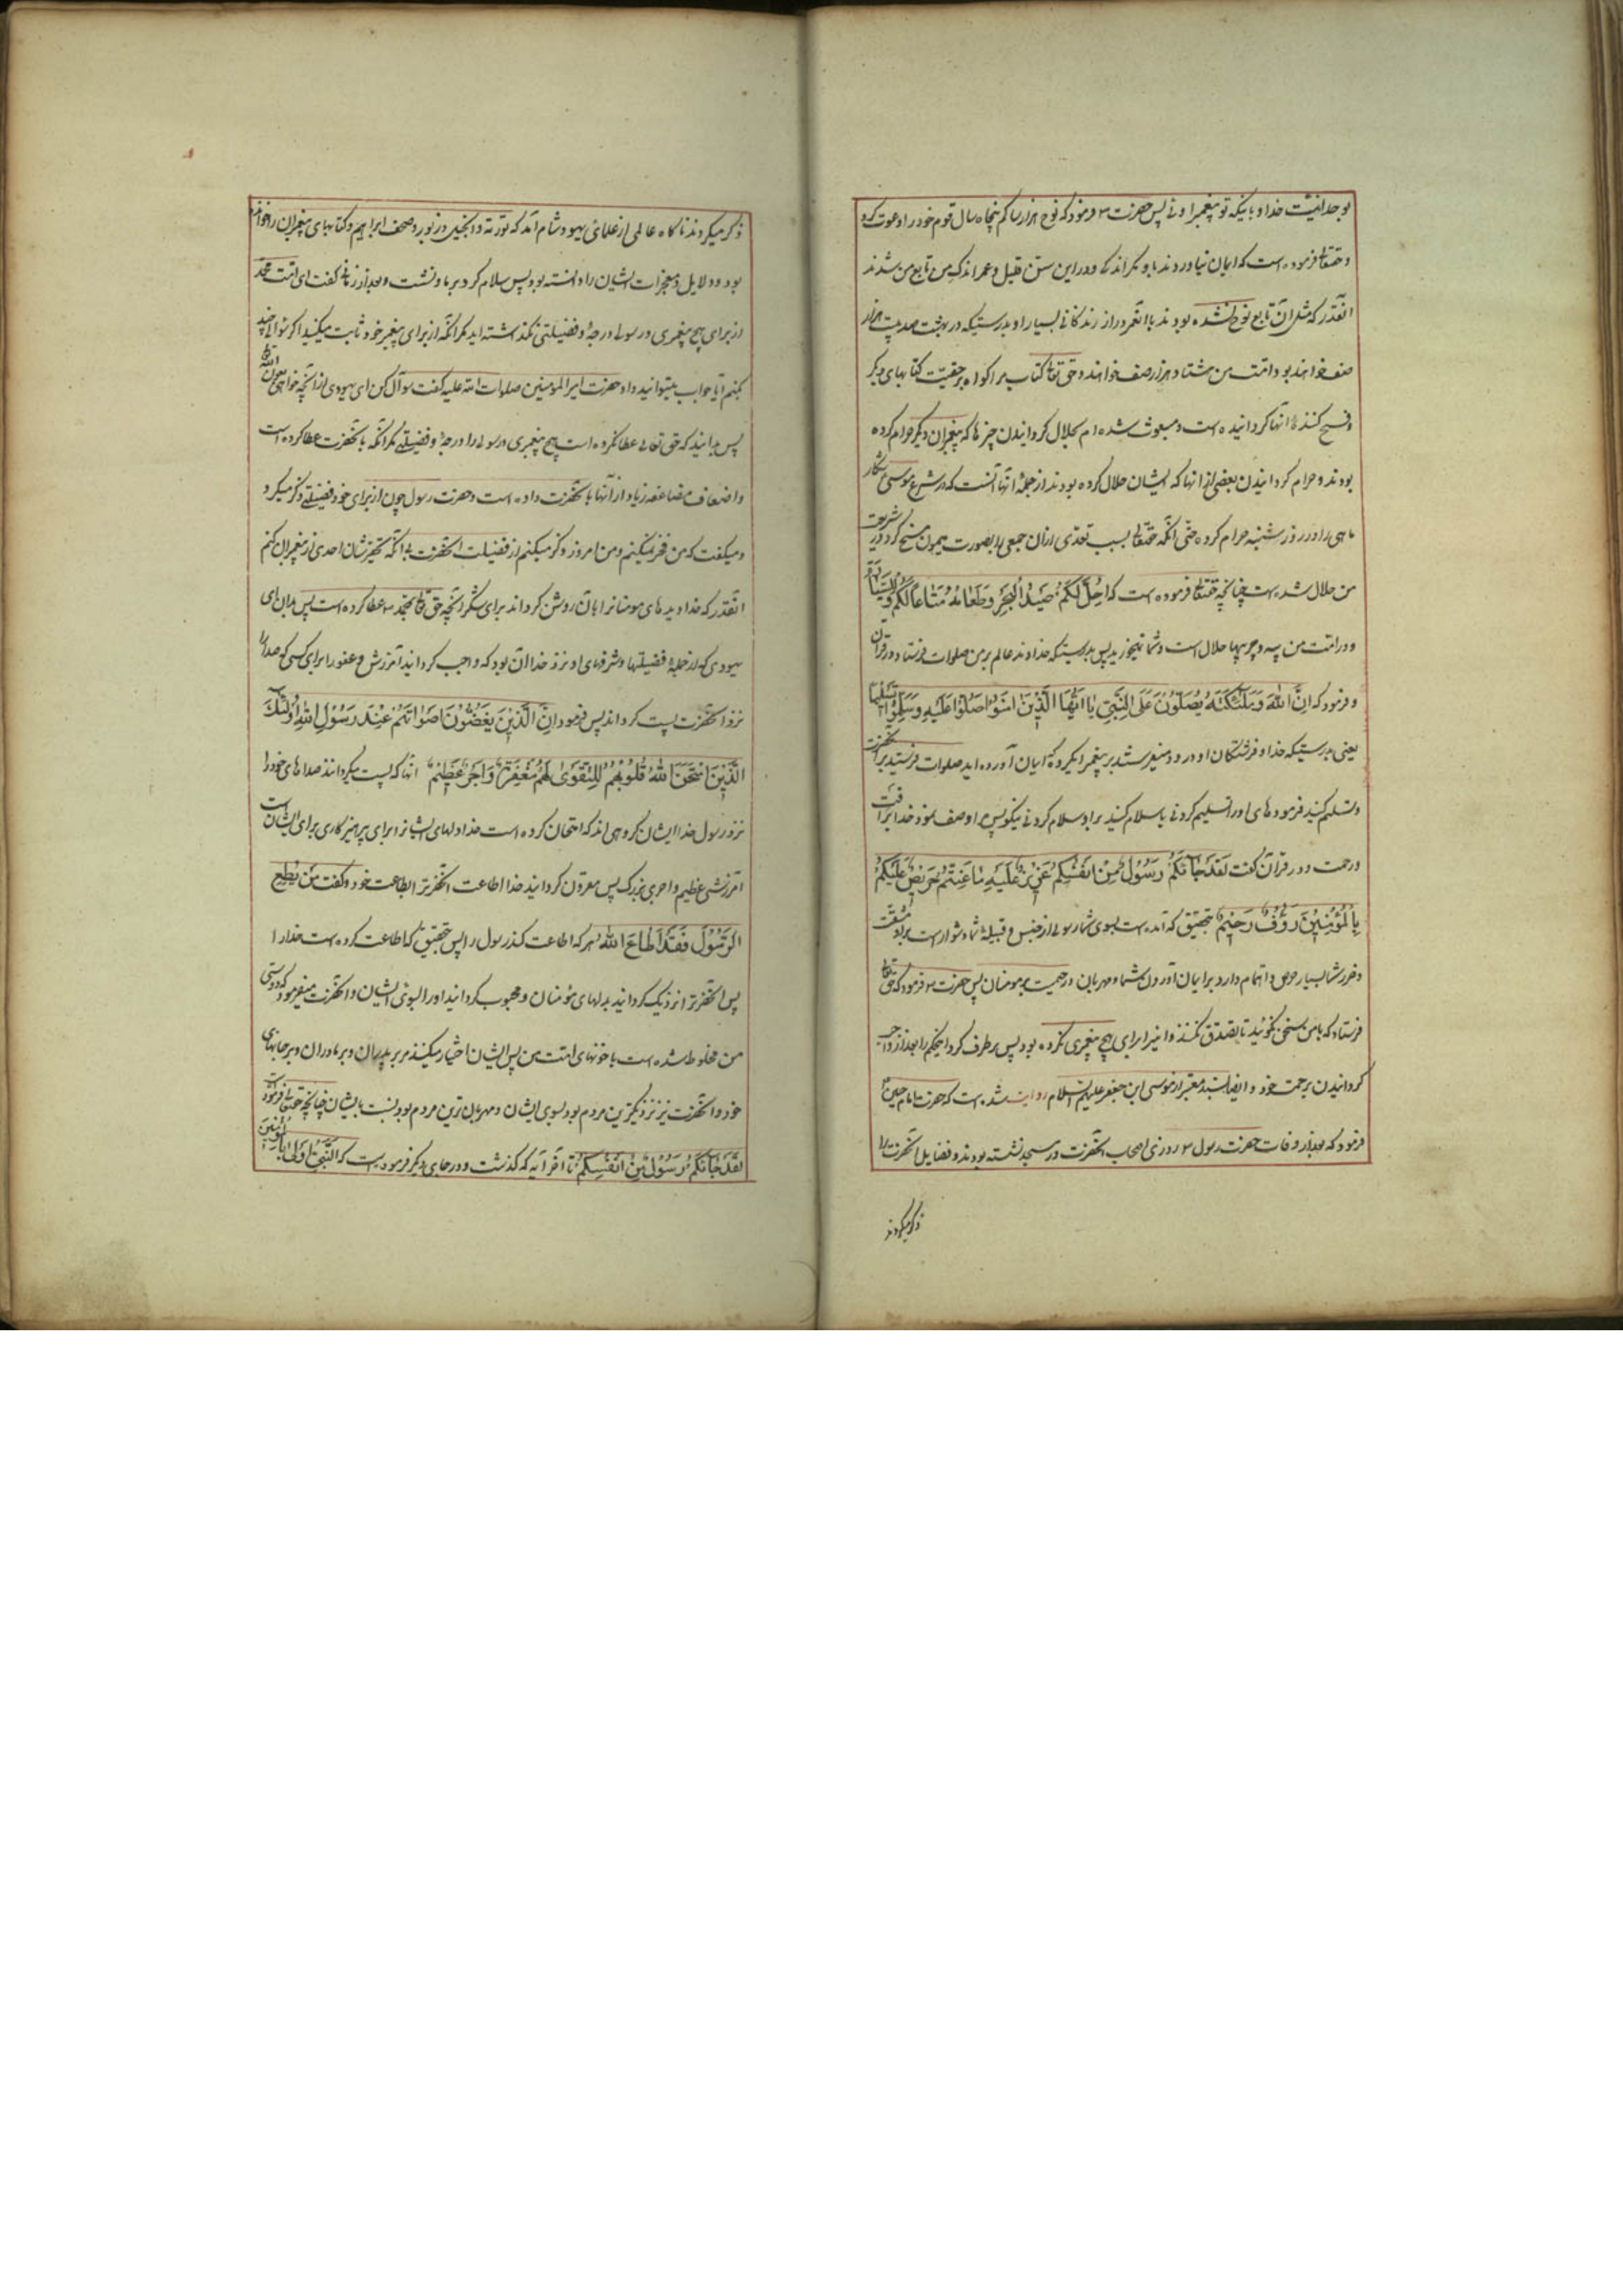 بوحدانیت خدا و باینکه تو پیغمبر اوئی پس حضرت ص فرمود که نوح هزار سال کم پنجاه سال قوم خود را دعوت کرد
و حقتعالی فرموده است که ایمان نیاوردند باو مگر اندکی و در این سن قلیل و عمر اندک من تابع من شدند
آنقدر که مثل آن تابع نوح نشده بودند با آن عمر دراز و زندگانی بسیار او بدرستیکه در بهشت صد و بیست هزار
صف خواهند بود و امت من هشتاد هزار صف خواهند و حق تعالی کتاب مرا گواه بر حقیت کتابهای دیگر
و نسخ کننده آنها گردانیده است و مبعوث شده ام بحلال گردانیدن چیزها که پیغمبران دیگر حرام کرده
بودند و حرام گردانیدن بعضی از آنها که ایشان حلال کرده بودند از جمله آنها آنست که در شرع موسی شکار
ماهی را در روز شنبه حرام کرده حتی آنکه حقتعالی بسبب تعدی ازان جمعی را بصورت میمون مسخ کرد و در شریعت
من حلال شده است چنانچه حقتعالی فرموده است که احل لکم صید البحر و طعامه متاعا لکم و للسیارة
و در امت من پیه و چربیها حلال است و شما نمیخورید پس بدرستیکه خداوند عالم بر من صلوات فرستاد در قرآن
و فرمود که ان الله و ملئکته یصلون علی النبی یا ایها الذین امنوا صلوا علیه و سلموا تسلیما
یعنی بدرستیکه خدا و فرشتگان او درود میفرستند بر پیغمبر ایگروه که ایمان آورده اید صلوات فرستید بر آنحضرت
و تسلیم کنید فرموده های او را تسلیم کردنی یا سلام کنید بر او سلام کردنی نیکو پس مرا وصف نمود خدا برأفت
و رحمت و در قرآن گفت لقد جائکم رسول من انفسکم عزیز علیه ما عنتم حریص علیکم
بالمؤمنین رؤف رحیم بتحقیق که آمده است بسوی شما رسولی از جنس و قبیله شما دشوار است بر او مشقت
و ضرر شما بسیار حرص و اهتمام دارد بر ایمان آوردن شما و مهربان و رحیمست بر مومنان پس حضرت ص فرمود که حق تعالی
فرستاد که با من سخن نگوئید تا تصدق نکنند و اینرا برای هیچ پیغمبری نکرده بود پس برطرف کرد اینحکم را بعد از واجب
گردانیدن برحمت خود و ایضا بسند معتبر از موسی ابن جعفر علیهم السلام روایت شده است که حضرت امام حسین ع
فرمود که بعد از وفات حضرت رسول ص روزی اصحاب آنحضرت در مسجد نشسته بودند و فضایل آنحضرت را
ذکر میکردند
ذکر میکردند ناگاه عالمی از علمای یهود شام آمد که توریة و انجیل و زبور و صحف ابراهیم و کتابهای پیغمبران را خوانده
بود و دلایل و معجزات ایشان را دانسته بود پس سلام کرد بر ما و نشست و بعد از زمانی گفت ای امت محمد
از برای هیچ پیغمبری و رسولی درجه و فضیلتی نگذاشته اید مگر آنکه از برای پیغمبر خود ثابت میکنید اگر سؤالی چند
بکنم آیا جواب میتوانید داد حضرت امیرالمومنین صلوات الله علیه گفت سوآل کن ای یهودی از آنچه خواهی بعون الله
پس بدانید که حق تعالی عطا نکرده است هیچ پیغمبری و رسولی را درجه و فضیلتی مگر آنکه بآنحضرت عطا کرده است
و اضعاف مضاعفه زیاد از آنها بآنحضرت داده است و حضرت رسول چون از برای خود فضیلتی ذکر میکرد
و میگفت که من فخر نمیکنم و من امروز ذکر میکنم از فضیلت آنحضرت بی آنکه تحقیر شان احدی از پیغمبران کنم
آنقدر که خدا دیده های مومنانرا بآن روشن گرداند برای شکر آنچه حق تعالی بمحمد ص عطا کرده است پس بدان ای
یهودی که از جمله فضیلتها و شرفهای او نزد خدا آن بود که واجب گردانید آمرزش و عفو را برای کسی که صدا را
نزد آنحضرت پست گرداند پس فرمود ان الذین یغضون اصواتهم عند رسول الله اولئک
الذین امتحن الله قلوبهم للتقوی لهم مغفرة و اجر عظیم آنها که پست میگردانند صداهای خود را
نزد رسول خدا ایشان گروهی اند که امتحان کرده است خدا دلهای ایشانرا برای پرهیزکاری برای ایشان است
آمرزشی عظیم و اجری بزرگ پس مقرون گردانید خدا اطاعت آنحضرترا بطاعت خود و گفت من یطع
الرسول فقد اطاع الله هر که اطاعت کند رسول را پس بتحقیق که اطاعت کرده است خدا را
پس آنحضرترا نزدیک گردانید بدلهای مؤمنان و محبوب گردانید او را بسوی ایشان و آنحضرت میفرمود که دوستی
من مخلوط شده است با خونهای امت من پس ایشان اختیار میکنند مرا بر پدران و بر مادران و بر جانهای
خود و آنحضرت نیز نزدیکترین مردم بود بسوی ایشان و مهربان ترین مردم بود نسبت بایشان چنانچه حقتعالی فرموده است
لقد جائکم رسول من انفسکم تا آخر آیه که گذشت و در جای دیگر فرموده است که النبی اولی بالمؤمنین